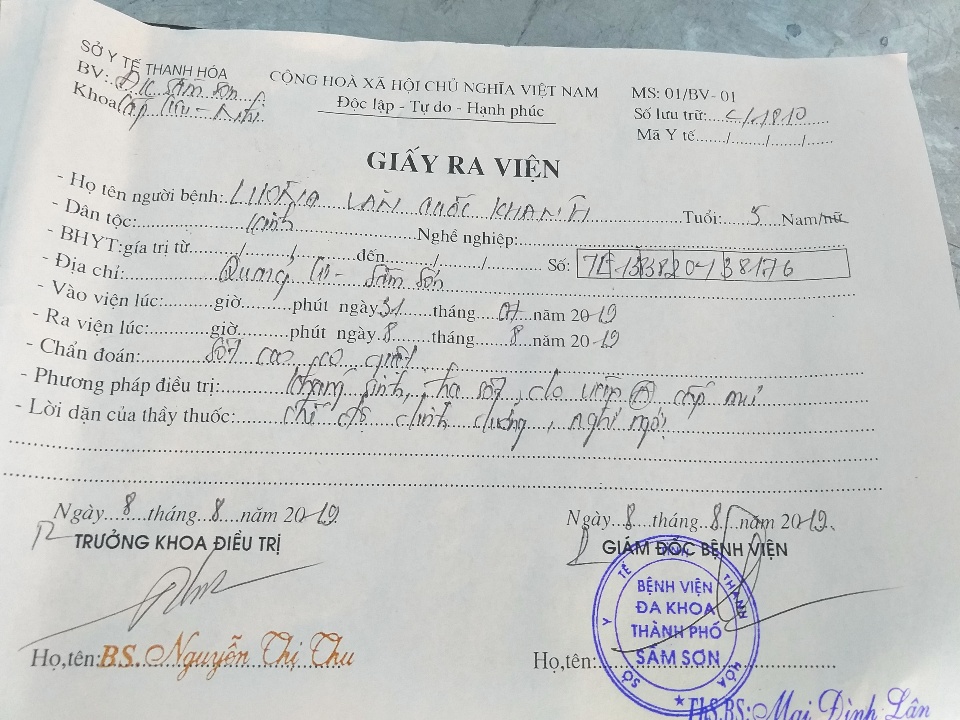 SỞ Y TẾ THANH HÓA
BV: ĐK Sầm Sơn
Khoa Cấp Cứu - Nhi
CỘNG HOÀ XÃ HỘI CHỦ NGHĨA VIỆT NAM
Độc lập - Tự do - Hạnh phúc
MS: 01/BV- 01
Số lưu trữ:
Mã Y tế....../....../....../......
GIẤY RA VIỆN
- Họ tên người bệnh: LƯƠNG VĂN QUỐC KHANH Tuổi: 5 Nam/nữ
- Dân tộc: Kinh Nghề nghiệp:
- BHYT:gía trị từ....../....../......đến....../....../...... Số:
- Địa chỉ: Quảng Cư - Sầm Sơn
- Vào viện lúc:.........giờ.........phút ngày 31 tháng 07 năm 2019
- Ra viện lúc:.........giờ.........phút ngày 8 tháng 8 năm 2019
- Chẩn đoán: Sốt cao co giật
- Phương pháp điều trị: kháng sinh, hạ sốt,
- Lời dặn của thầy thuốc: chế độ dinh dưỡng, nghỉ ngơi
Ngày 8 tháng 8 năm 2019
TRƯỞNG KHOA ĐIỀU TRỊ
Họ,tên: BS. Nguyễn Thị Thu
Ngày 8 tháng 8 năm 2019
GIÁM ĐỐC BỆNH VIỆN
SỞ Y TẾ THANH HÓA
BỆNH VIỆN
ĐA KHOA
THÀNH PHỐ
SẦM SƠN
Họ,tên:
ThS.BS: Mai Đình Lân